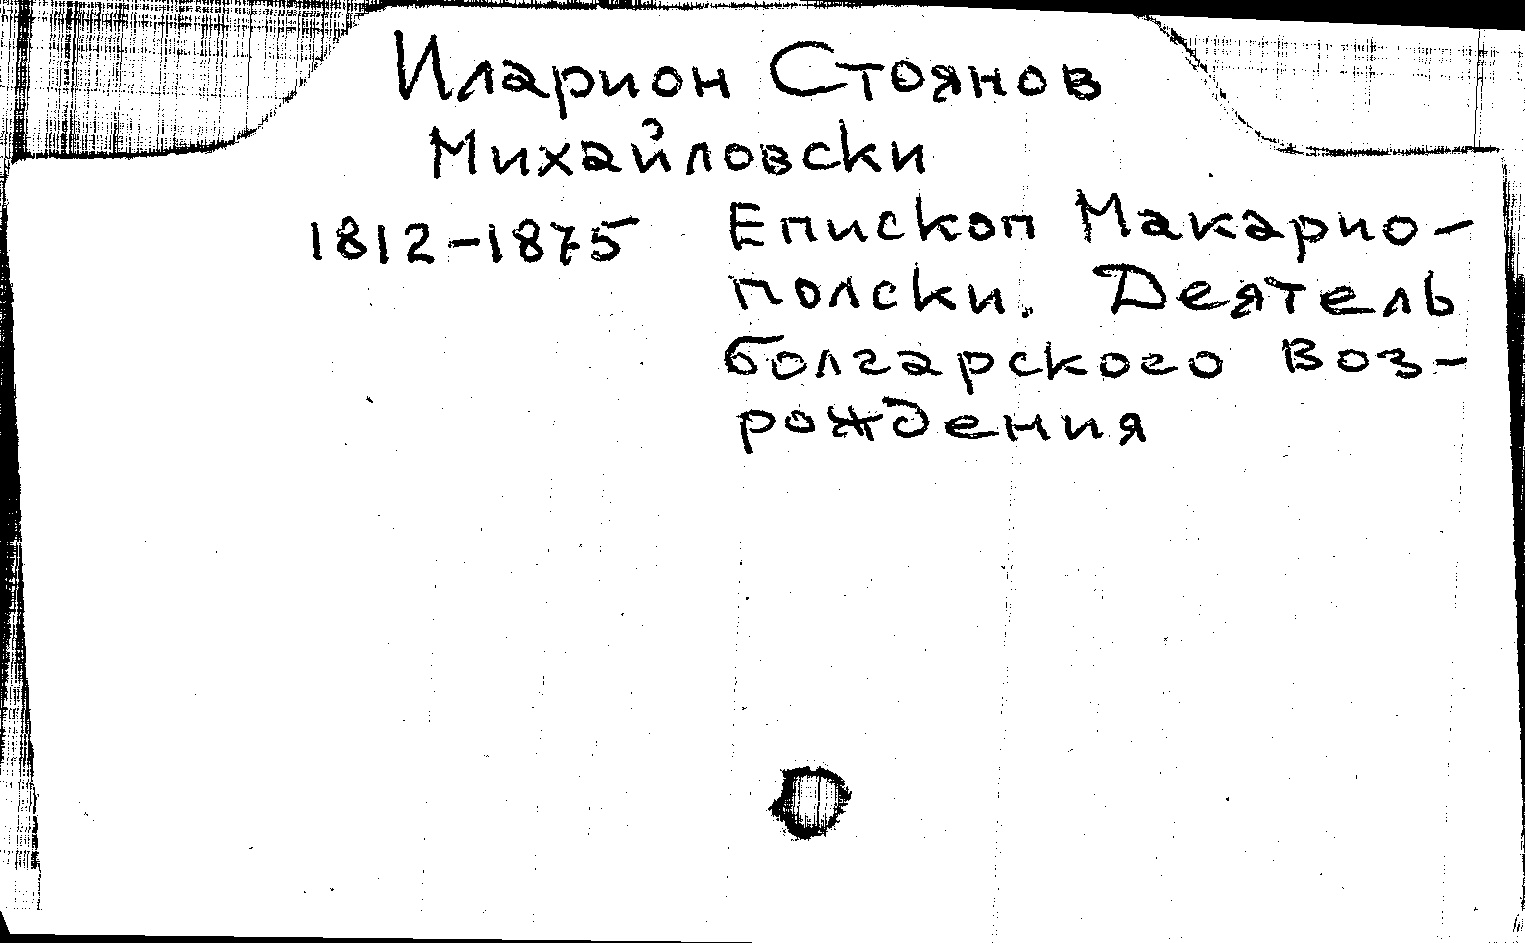 Иларион Стоянов
Михайловски
1812-1875 Епископ Макарио-
полски. Деятель
болгарского Воз-
рождения